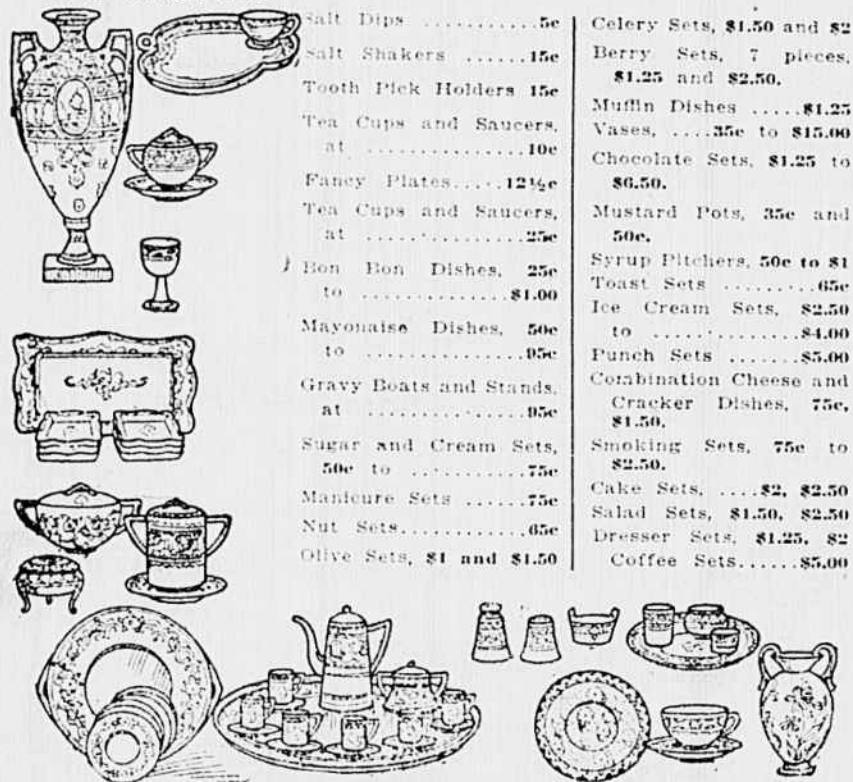 Salt Dips ............5c
Salt Shakers ......15c
Tooth Pick Holders 15c
Tea Cups and Saucers,
at ................10c
Fancy Plates.....12½c
Tea Cups and Saucers,
at ................25c
Bon Bon Dishes, 25c
to ..............$1.00
Mayonaise Dishes, 50c
to ...............95c
Gravy Boats and Stands,
at ...............95c
Sugar and Cream Sets,
50c to ...........75c
Manicure Sets ......75c
Nut Sets...........65c
Olive Sets, $1 and $1.50
Celery Sets, $1.50 and $2
Berry Sets, 7 pieces,
$1.25 and $2.50.
Muffin Dishes .....$1.25
Vases, ....35c to $15.00
Chocolate Sets, $1.25 to
$6.50.
Mustard Pots, 35c and
50c.
Syrup Pitchers, 50c to $1
Toast Sets .........65c
Ice Cream Sets, $2.50
to ..............$4.00
Punch Sets .......$5.00
Combination Cheese and
Cracker Dishes, 75c,
$1.50.
Smoking Sets, 75c to
$2.50.
Cake Sets, ....$2, $2.50
Salad Sets, $1.50, $2.50
Dresser Sets, $1.25, $2
Coffee Sets......$5.00